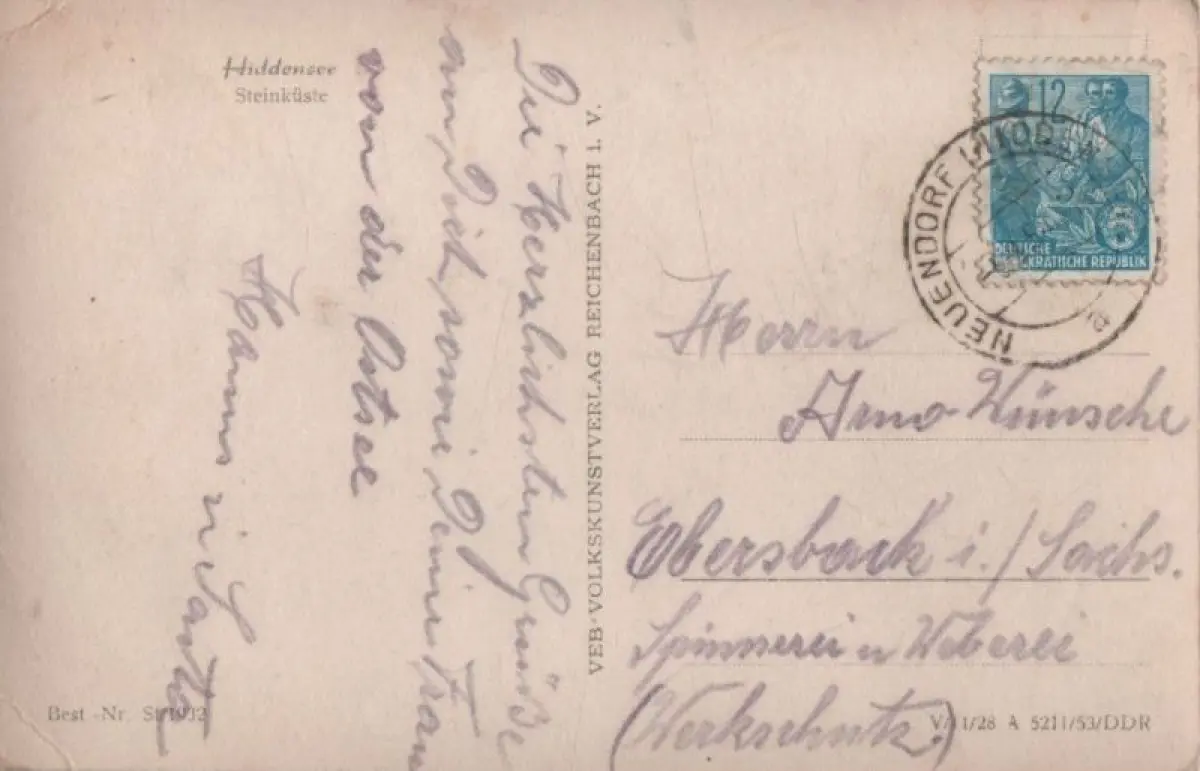 Hiddensee
Steinküste
Die Herzlichsten Grüße
an Dich sowie Deine Frau
von der Ostsee
VEB-VOLKSKUNSTVERLAG REICHENBACH I. V.
12
DEUTSCHE
DEMOKRATISCHE REPUBLIK
NEUENDORF
Herrn
Arno Wünsche
Ebersbach i./Sachs.
Spinnerei u Weberei
(Werkschutz.)
Best.-Nr.
V/11/28 A 5211/53/DDR